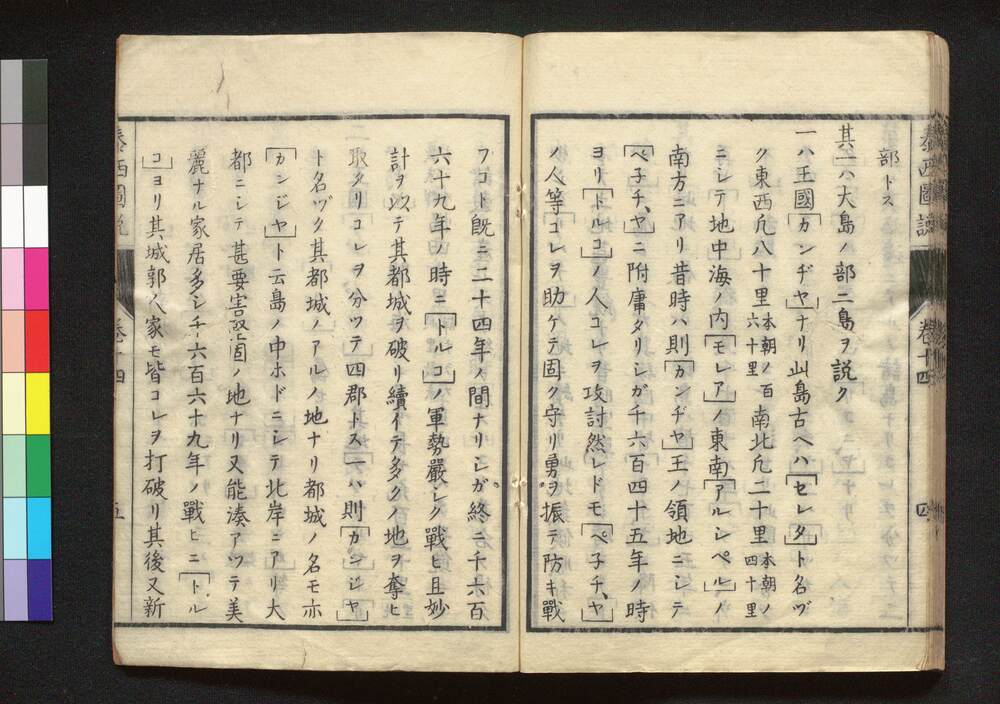 泰西圖説
卷十四
四
部トス
其一ハ大島ノ部二島ヲ説ク
一ハ王國「カンヂヤ」ナリ此島古ヘハ「セレタ」ト名ヅ
ク東西凡八十里本朝ノ百六十里南北凡二十里本朝ノ四十里
ニシテ地中海ノ内「モレア」ノ東南「アルシペル」ノ
南方ニアリ昔時ハ則「カンヂヤ」王ノ領地ニシテ
「ベ子チヤ」ニ附庸タリシガ千六百四十五年ノ時
ヨリ「トルコ」ノ人コレヲ攻討然レドモ「ベ子チヤ」
ノ人等コレヲ助ケテ固ク守リ勇ヲ振テ防キ戰
フコト既ニ二十四年ノ間ナリシガ終ニ千六百
六十九年ノ時ニ「トルコ」ノ軍勢嚴シク戰ヒ且妙
計ヲ以テ其都城ヲ破リ續イテ多クノ地ヲ奪ヒ
取タリコレヲ分ツテ四郡トス一ハ則「カンジヤ」
ト名ヅク其都城ノアルノ地ナリ都城ノ名モ亦
「カンジヤ」ト云島ノ中ホドニシテ北岸ニアリ大
都ニシテ甚要害堅固ノ地ナリ又能湊アツテ美
麗ナル家居多シ千六百六十九年ノ戰ヒニ「トル
コ」ヨリ其城郭人家モ皆コレヲ打破リ其後又新
泰西圖説
卷十四
五